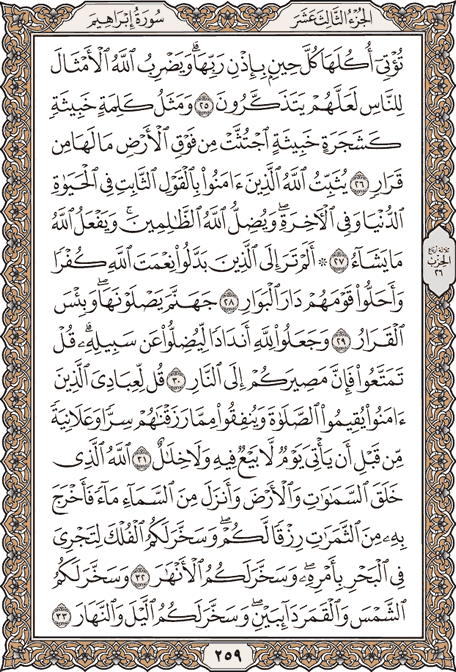 الجزء الثالث عشر
سورة إبراهيم
تُؤْتِىٓ أُكُلَهَا كُلَّ حِينٍۭ بِإِذْنِ رَبِّهَا ۗ وَيَضْرِبُ ٱللَّهُ ٱلْأَمْثَالَ
لِلنَّاسِ لَعَلَّهُمْ يَتَذَكَّرُونَ ٢٥ وَمَثَلُ كَلِمَةٍ خَبِيثَةٍ
كَشَجَرَةٍ خَبِيثَةٍ ٱجْتُثَّتْ مِن فَوْقِ ٱلْأَرْضِ مَا لَهَا مِن
قَرَارٍ ٢٦ يُثَبِّتُ ٱللَّهُ ٱلَّذِينَ ءَامَنُوا۟ بِٱلْقَوْلِ ٱلثَّابِتِ فِى ٱلْحَيَوٰةِ
ٱلدُّنْيَا وَفِى ٱلْـَٔاخِرَةِ ۖ وَيُضِلُّ ٱللَّهُ ٱلظَّـٰلِمِينَ ۚ وَيَفْعَلُ ٱللَّهُ
مَا يَشَآءُ ٢٧ ۞ أَلَمْ تَرَ إِلَى ٱلَّذِينَ بَدَّلُوا۟ نِعْمَتَ ٱللَّهِ كُفْرًا
وَأَحَلُّوا۟ قَوْمَهُمْ دَارَ ٱلْبَوَارِ ٢٨ جَهَنَّمَ يَصْلَوْنَهَا ۖ وَبِئْسَ
ٱلْقَرَارُ ٢٩ وَجَعَلُوا۟ لِلَّهِ أَندَادًا لِّيُضِلُّوا۟ عَن سَبِيلِهِۦ ۗ قُلْ
تَمَتَّعُوا۟ فَإِنَّ مَصِيرَكُمْ إِلَى ٱلنَّارِ ٣٠ قُل لِّعِبَادِىَ ٱلَّذِينَ
ءَامَنُوا۟ يُقِيمُوا۟ ٱلصَّلَوٰةَ وَيُنفِقُوا۟ مِمَّا رَزَقْنَـٰهُمْ سِرًّا وَعَلَانِيَةً
مِّن قَبْلِ أَن يَأْتِىَ يَوْمٌ لَّا بَيْعٌ فِيهِ وَلَا خِلَـٰلٌ ٣١ ٱللَّهُ ٱلَّذِى
خَلَقَ ٱلسَّمَـٰوَٰتِ وَٱلْأَرْضَ وَأَنزَلَ مِنَ ٱلسَّمَآءِ مَآءً فَأَخْرَجَ
بِهِۦ مِنَ ٱلثَّمَرَٰتِ رِزْقًا لَّكُمْ ۖ وَسَخَّرَ لَكُمُ ٱلْفُلْكَ لِتَجْرِىَ
فِى ٱلْبَحْرِ بِأَمْرِهِۦ ۖ وَسَخَّرَ لَكُمُ ٱلْأَنْهَـٰرَ ٣٢ وَسَخَّرَ لَكُمُ
ٱلشَّمْسَ وَٱلْقَمَرَ دَآئِبَيْنِ ۖ وَسَخَّرَ لَكُمُ ٱلَّيْلَ وَٱلنَّهَارَ ٣٣
الحزب
٢٦
٢٥٩